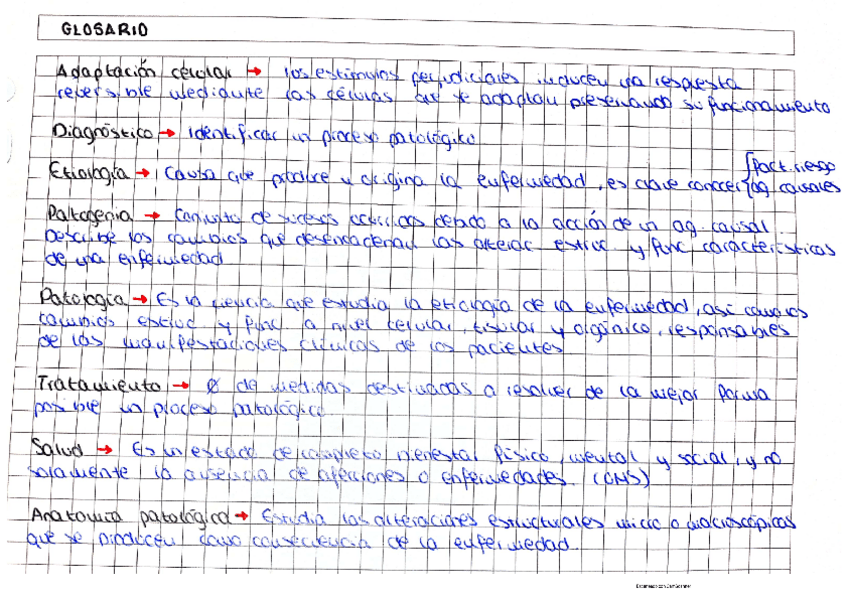 GLOSARIO
Adaptación celular → los estímulos perjudiciales inducen una respuesta
reversible mediante las células que se adaptan preservando su funcionamiento
Diagnóstico → identificar un proceso patológico
Etiología → Causa que produce y origina la enfermedad, es clave conocer { fact. riesgo
ag. causales
Patogenia → Conjunto de sucesos debido a la acción de un ag. causal.
Describe los cambios que desencadenan las alterac. estruc y func. características
de una enfermedad
Patología → Es la ciencia que estudia la etiología de la enfermedad, así como los
cambios estruc. y func. a nivel celular, tisular y orgánico, responsables
de las manifestaciones clínicas de los pacientes
Tratamiento → de medidas destinadas a resolver de la mejor forma
posible un proceso patológico
Salud → Es un estado de completo bienestar físico, mental y social, y no
solamente la ausencia de afecciones o enfermedades. (OMS)
Anatomía patológica → Estudia las alteraciones estructurales micro o macroscópicas
que se producen como consecuencia de la enfermedad.
Escaneado con CamScanner